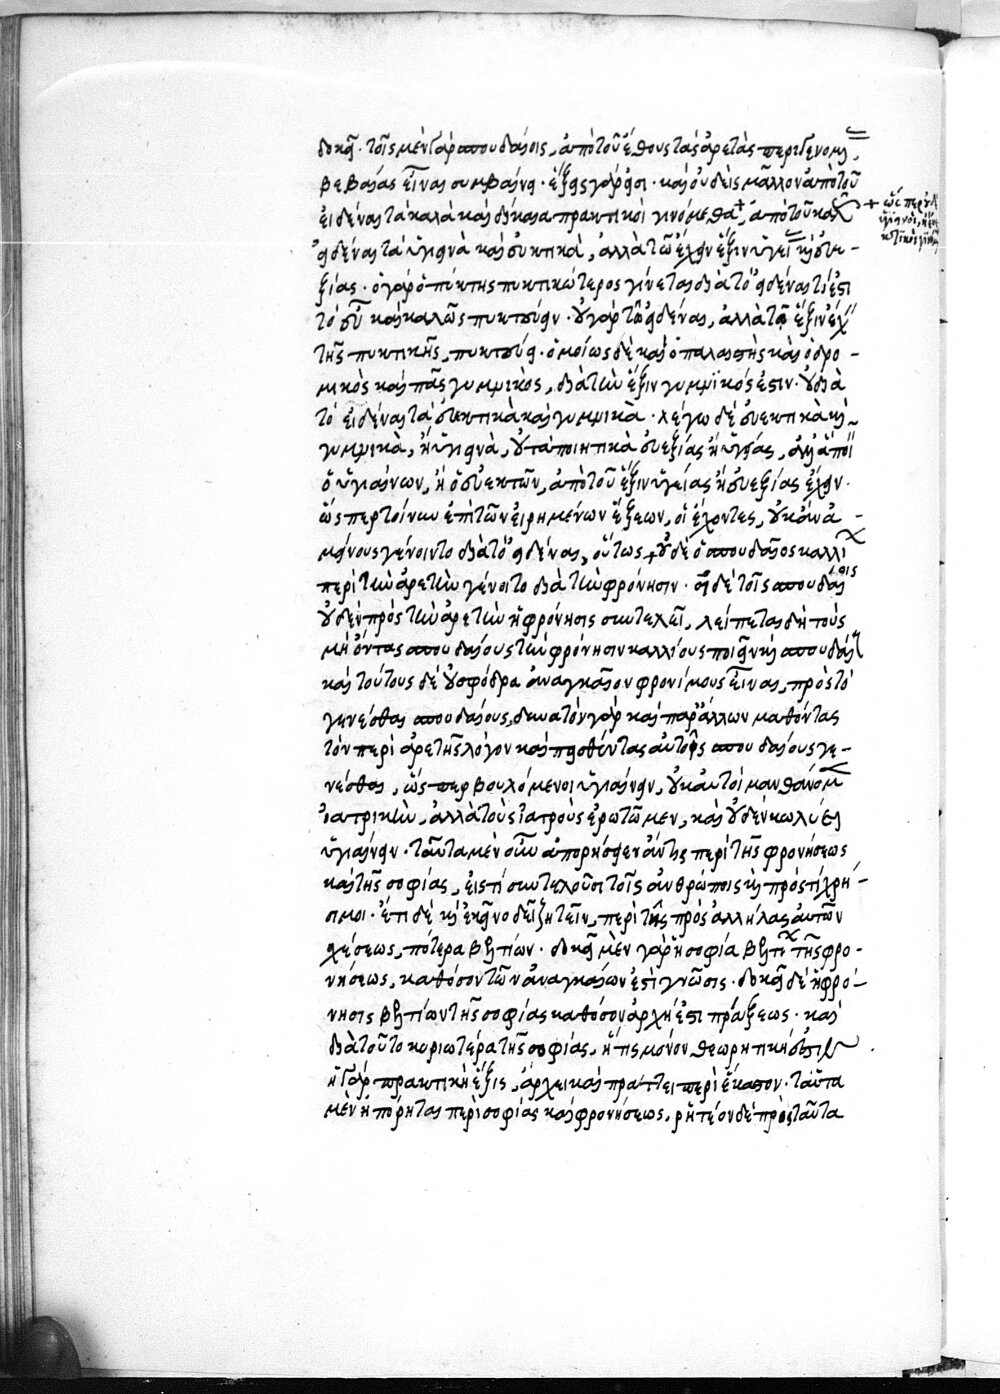 δοκεῖ. τοῖς μὲν γὰρ σπουδαίοις, ἀπὸ τοῦ ἔθους τὰς ἀρετὰς περιγενομένας
βεβαίας εἶναι συμβαίνει. ἕξεις γάρ εἰσι. καὶ οὐδεὶς μᾶλλον ἀπὸ τοῦ
εἰδέναι τὰ καλὰ καὶ δίκαια πρακτικοὶ γινόμεθα + ἀπὸ τοῦ καλ
+ ὥσπερ οὐδὲ
ὑγιεινοὶ, ἢ εὐε
κτικοὶ γινόμεθα
εἰδέναι τὰ ὑγιεινὰ καὶ εὐεκτικὰ, ἀλλὰ τῷ ἔχειν ἕξιν ὑγείας καὶ εὐε-
ξίας. ὁ γὰρ ὁ πύκτης πυκτικώτερος γίνεται διὰ τὸ εἰδέναι τί ἐστι
τὸ εὖ καὶ καλῶς πυκτεύειν. οὐ γὰρ τῷ εἰδέναι, ἀλλὰ τῷ ἕξιν ἔχειν
τῆς πυκτικῆς, πυκτεύει. ὁμοίως δὲ καὶ ὁ παλαιστὴς καὶ ὁ δρο-
μικὸς καὶ πᾶς γυμνικὸς, διὰ τὴν ἕξιν γυμνικός ἐστιν. οὐ διὰ
τὸ εἰδέναι τὰ εὐεκτικὰ καὶ γυμνικὰ. λέγω δὲ εὐεκτικὰ καὶ
γυμνικὰ, ἢ ὑγιεινὰ, οὐ τὰ ποιητικὰ εὐεξίας ἢ ὑγείας, ἀλλ' ἃ ποιεῖ
ὁ ὑγιαίνων, ἢ ὁ εὐεκτῶν, ἀπὸ τοῦ ἕξιν ὑγείας ἢ εὐεξίας ἔχειν.
ὥσπερ τοίνυν ἐπὶ τῶν εἰρημένων ἕξεων, οἱ ἔχοντες, οὐκ ἂν ἀ-
μείνους γένοιντο διὰ τὸ εἰδέναι, οὕτως + οὐδὲ ὁ σπουδαῖος καλλίων
περὶ τὴν ἀρετὴν γένοιτο διὰ τὴν φρόνησιν. εἰ δὲ τοῖς σπουδαίοις
οὐδὲν πρὸς τὴν ἀρετὴν ἡ φρόνησις συντελεῖ, λείπεται δὴ τοὺς
μὴ ὄντας σπουδαίους τὴν φρόνησιν καλλίους ποιεῖν καὶ σπουδαίους
καὶ τούτους δὲ οὐ σφόδρα ἀναγκαῖον φρονίμους εἶναι, πρὸς τὸ
γενέσθαι σπουδαίους, δυνατὸν γὰρ καὶ παρ' ἄλλων μαθόντας
τὸν περὶ ἀρετῆς λόγον καὶ πεισθέντας αὐτοῖς σπουδαίους γε-
νέσθαι, ὥσπερ βουλόμενοι ὑγιαίνειν, οὐκ αὐτοὶ μανθάνομεν
ἰατρικὴν, ἀλλὰ τοὺς ἰατροὺς ἐρωτῶμεν, καὶ οὐδὲν κωλύει
ὑγιαίνειν. ταῦτα μὲν οὖν ἀπορήσειεν ἄν τις περὶ τῆς φρονήσεως
καὶ τῆς σοφίας, εἰς τί συντελοῦσι τοῖς ἀνθρώποις καὶ πρὸς τί χρή-
σιμοι. ἔτι δὲ καὶ ἐκεῖνο δεῖ ζητεῖν, περὶ τῆς πρὸς ἀλλήλας αὐτῶν
σχέσεως, πότερα βελτίων. δοκεῖ μὲν γὰρ ἡ σοφία βελτίων τῆς φρο-
νήσεως, καθόσον τῶν ἀναγκαίων ἐστὶ γνῶσις. δοκεῖ δὲ ἡ φρό-
νησις βελτίων τῆς σοφίας καθόσον ἀρχή ἐστι πράξεως. καὶ
διὰ τοῦτο κυριωτέρα τῆς σοφίας, ἥτις μόνον θεωρητική ἐστιν.
ἡ γὰρ πρακτικὴ ἕξις, ἄρχει καὶ πράττει περὶ ἕκαστον. ταῦτα
μὲν ἠπόρηται περὶ σοφίας καὶ φρονήσεως, ῥητέον δὲ πρὸς ταῦτα